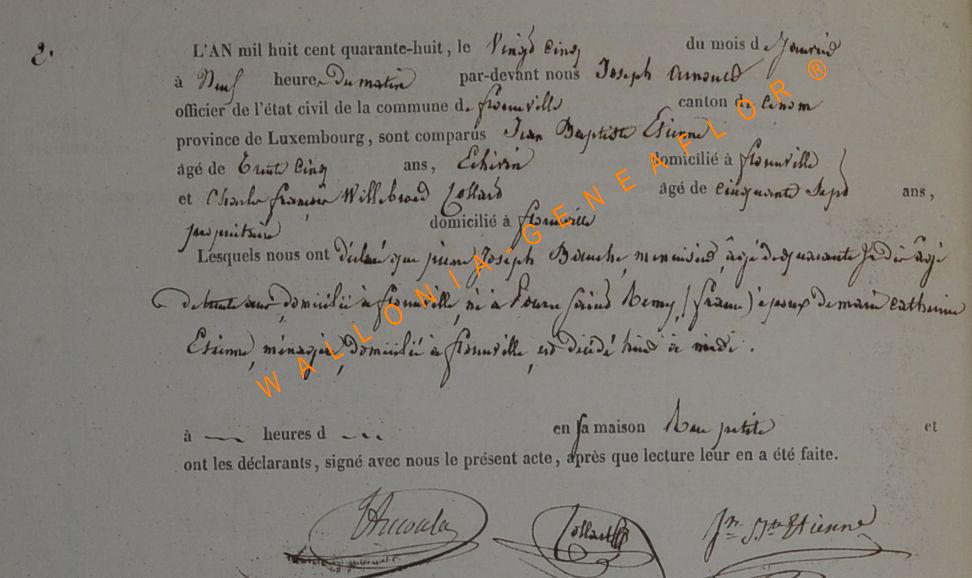 2.
L'AN mil huit cent quarante-huit, le Vingt Cinq du mois de Janvier
à Neuf heures Du matin par-devant nous Joseph Arnould
officier de l'état civil de la commune de florenville canton de
province de Luxembourg, sont comparus Jean Baptiste Etienne
âgé de Trente Cinq ans, Echevin domicilié à florenville
et Charles françois Willebrord Collard âgé de cinquante Sept ans,
propriétaire domicilié à florenville
Lesquels nous ont déclaré que pierre Joseph menuisier, âgé de quarante Je dis âgé
de trente ans, domicilié à florenville, né à Saint Remy, (france) époux de marie catherine
Etienne, ménagère, domiciliée à florenville, est décédé hier à midi.
à heures d en sa maison Rue petite et
ont les déclarants, signé avec nous le présent acte, après que lecture leur en a été faite.
Collard Jn. Bte Etienne
WALLONIA-GENEAFLOR ®